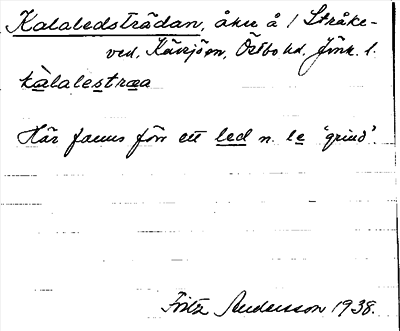 Kalaledsträdan, åker å 1 Stråke-
ved, Kävsjön, Östbo hd, Jönk. l.
kàlalestræa
Här fanns förr ett led n. le 'grind'.
Fritz Andersson 1938.